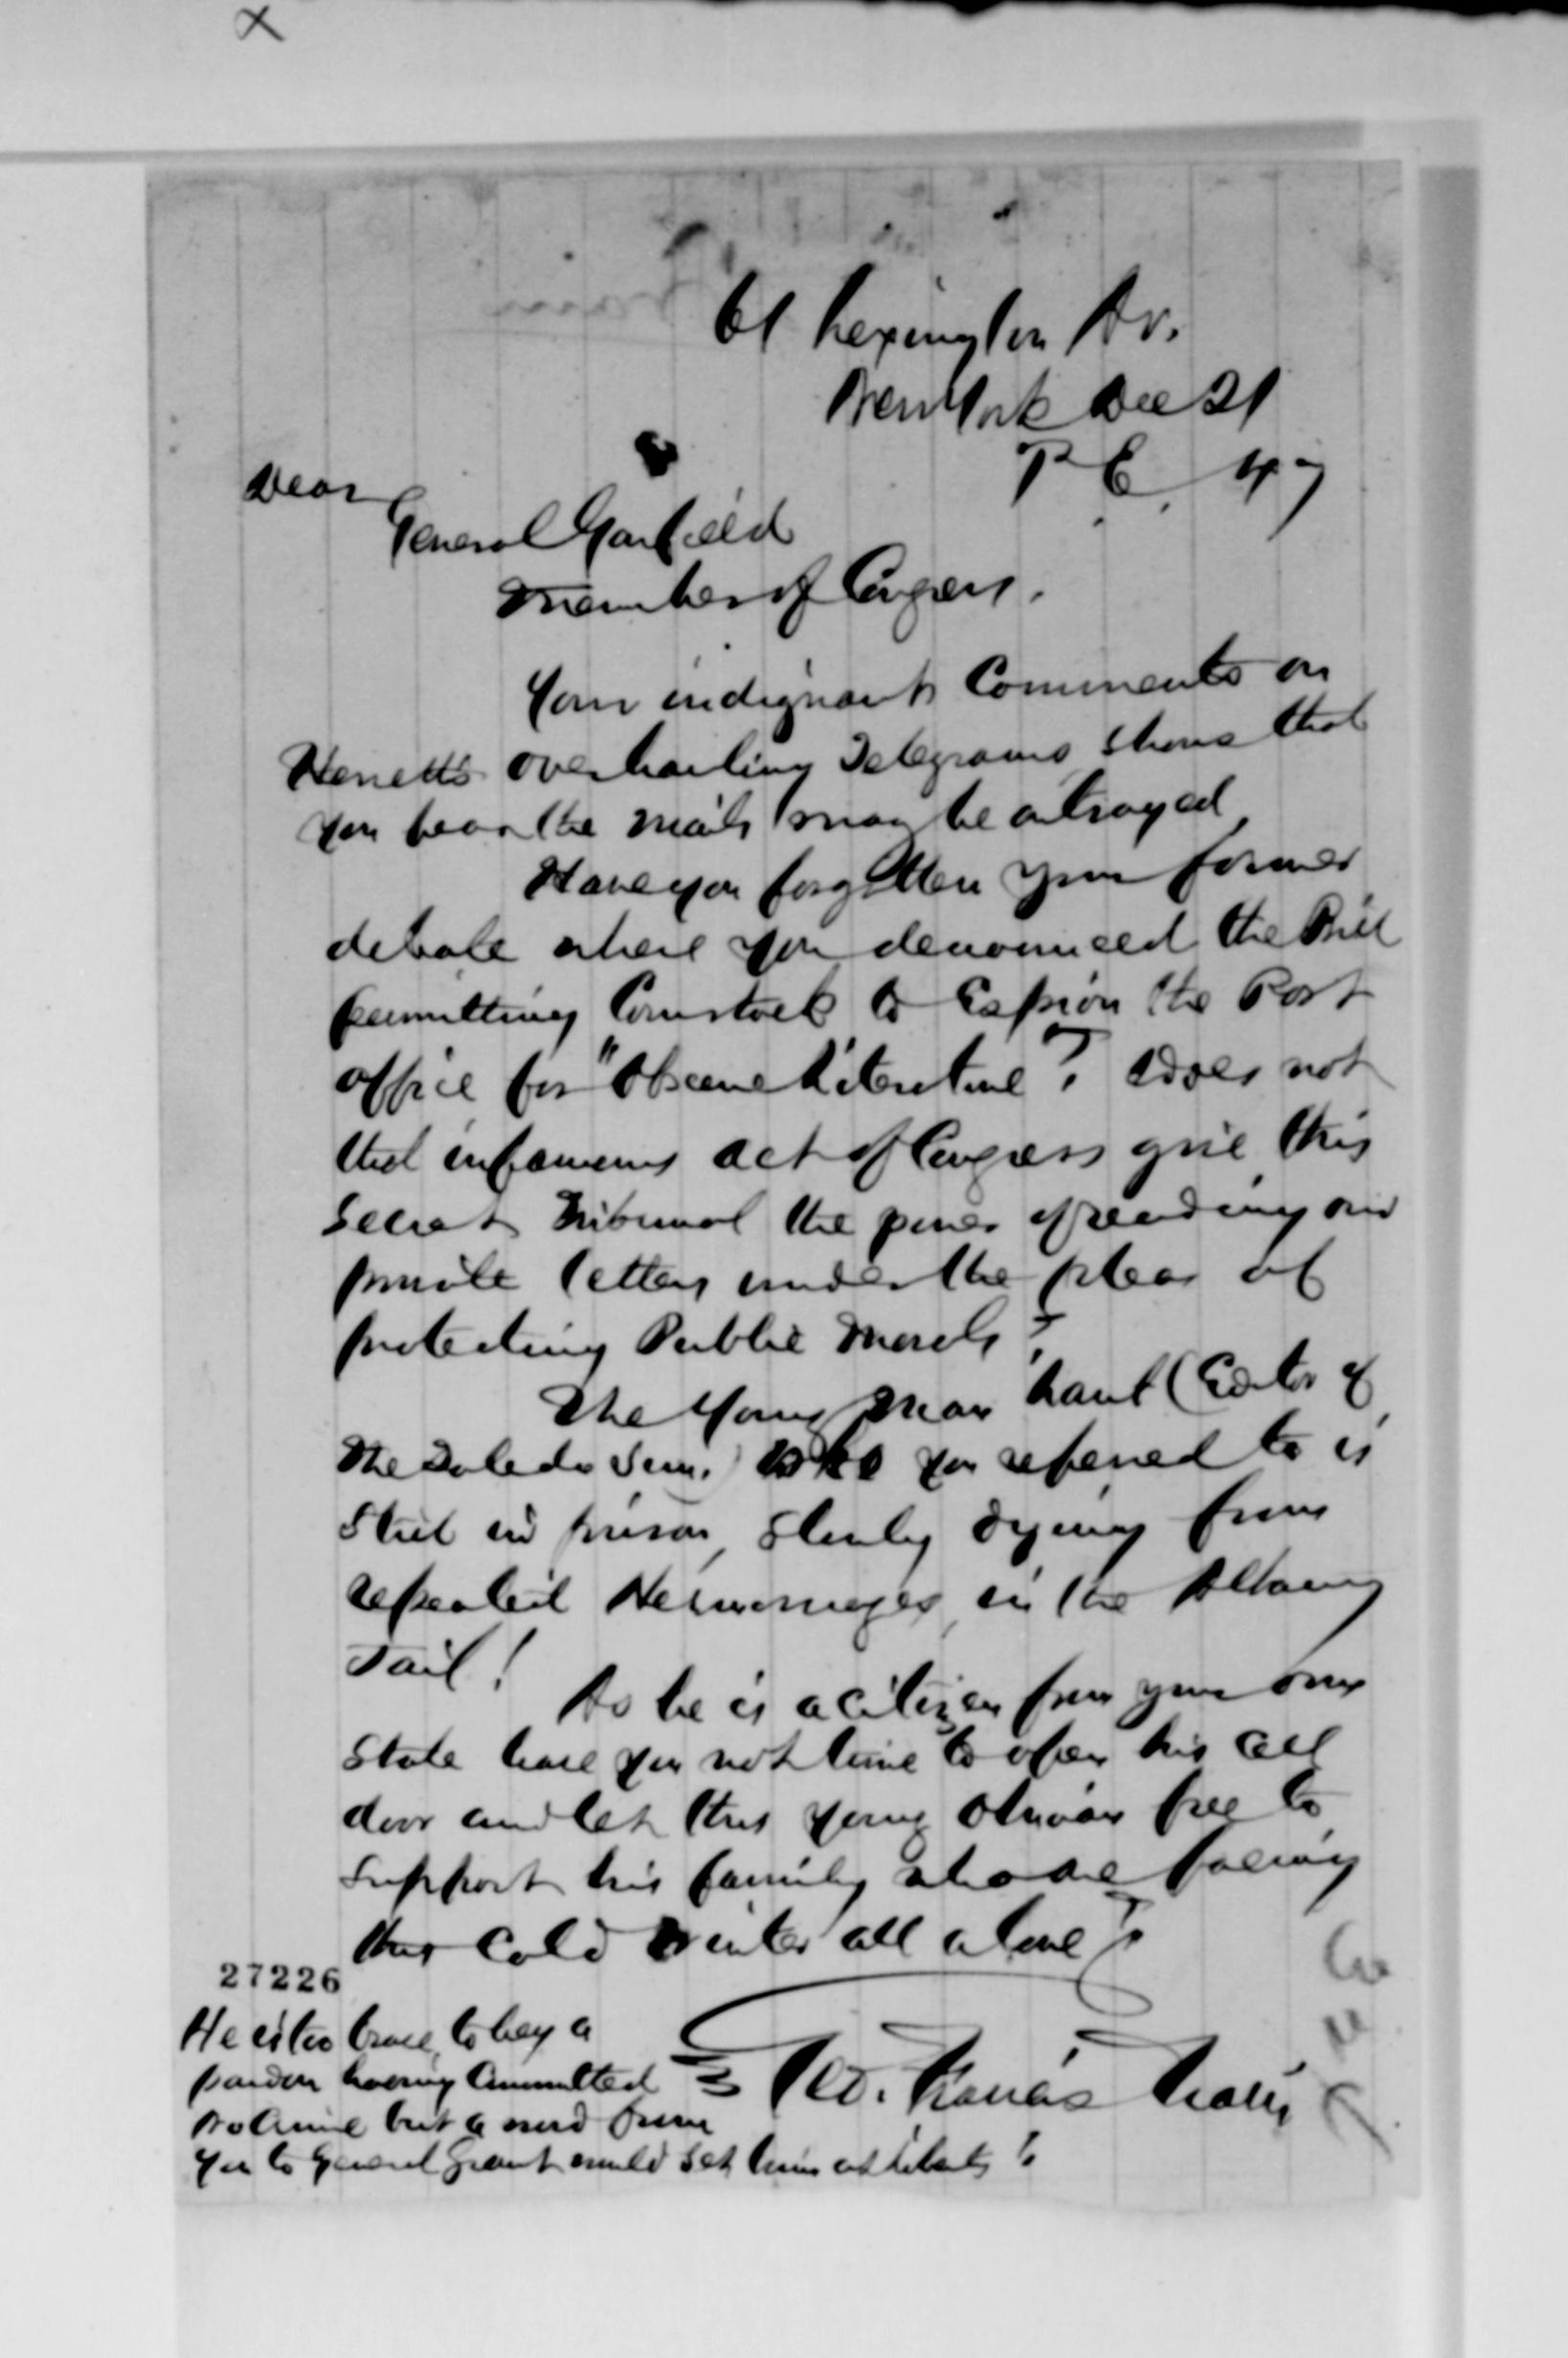 61 Lexington Av.
New York Dec 21
P. E. 47
Dear
General Garfield
Member of Congress.
Your indignant Comments on
Hewetts overhauling Telegrams shows that
you fear the mails may be outraged
Have you forgotten your former
debate where you denounced the Bill
permitting Comstock to Espion the Post
office for "Obscene Literature"? Does not
that infamous act of Congress give this
Secret Tribunal the power of reading our
private letters under the plea of
protecting Public Morals?
The Young Man Lant (Editor of
The Toledo Sun.) who you refered to is
Still in prison, slowly dying from
repeated Hemorrhages in the Albany
Jail!
As he is a citizen from your own
State have you not time to open his cell
door and let this young Ohioan free to
Support his family who are facing
this Cold Winter all alone?
27226
He is too brave to beg a
pardon having Committed
no Crime but a word from
you to General Grant would set him at liberty!
Geo. Francis Train